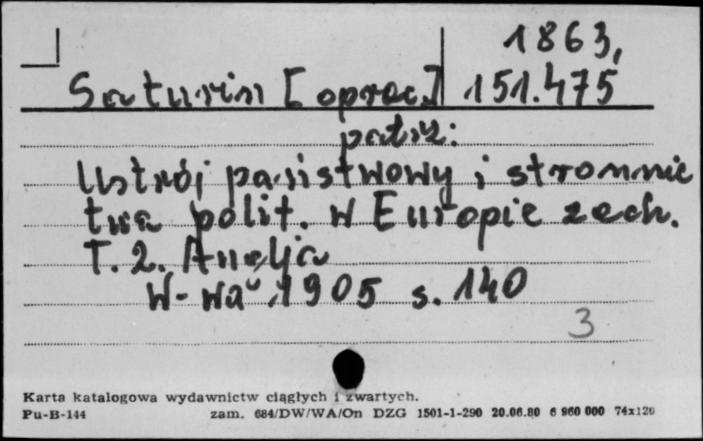 1863,
Saturnin [oprac.] 151.475
patrz:
Ustrój państwowy i stronnic
twa polit. w Europie zach.
T. 2. Anglja
W-wa 1905 s. 140
3
Karta katalogowa wydawnictw ciągłych i zwartych.
Pu-B-144 zam. 684/DW/WA/On DZG 1501-1-290 20.06.80 6 960 000 74x120